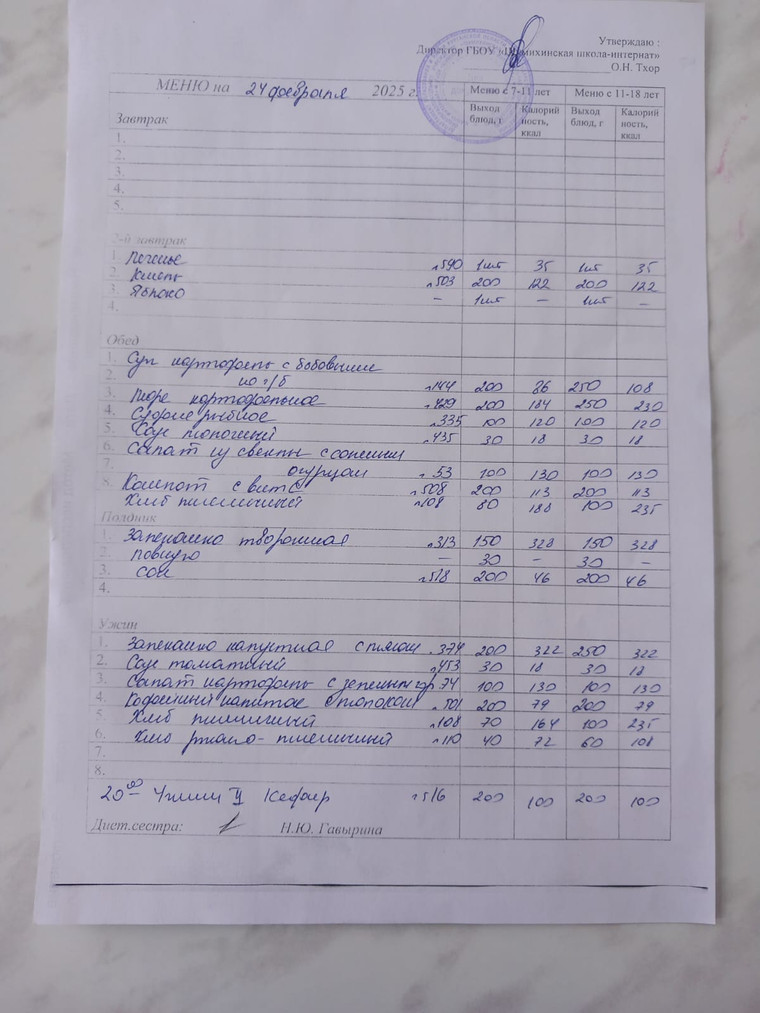 Утверждаю :
Директор ГБОУ «Шумихинская школа-интернат»
О.Н. Тхор
МЕНЮ на 24 февраля 2025 г. Меню с 7-11 лет Меню с 11-18 лет
Завтрак Выход блюд, г Калорий ность, ккал Выход блюд, г Калорий ность, ккал
1.
2.
3.
4.
5.
2-й завтрак
1. Печенье №590 1шт 35 1шт 35
2. Кисель №503 200 122 200 122
3. Яблоко — 1шт — 1шт —
4.
Обед
1. Суп картофель с бобовыми
2. на к/б №144 200 86 250 108
3. Пюре картофельное №429 200 184 250 230
4. Суфле рыбное №335 100 120 100 120
5. Соус молочный №435 30 18 30 18
6. Салат из свеклы с солеными
7. огурцом №53 100 130 100 130
8. Компот с вит С №508 200 113 200 113
Хлеб пшеничный №108 80 188 100 235
Полдник
1. Запеканка творожная №313 150 328 150 328
2. повидло — 30 — 30 —
3. сок №518 200 46 200 46
4.
Ужин
1. Запеканка капустная с мясом №374 200 322 250 322
2. Соус томатный №453 30 18 30 18
3. Салат картофель с зеленым гор №74 100 130 100 130
4. Кофейный напиток с молоком №501 200 79 200 79
5. Хлеб пшеничный №108 70 164 100 235
6. Хлеб ржано-пшеничный №110 40 72 60 108
7.
8.
20 00 Ужин II Кефир №516 200 100 200 100
Диет.сестра: Н.Ю. Гавырина